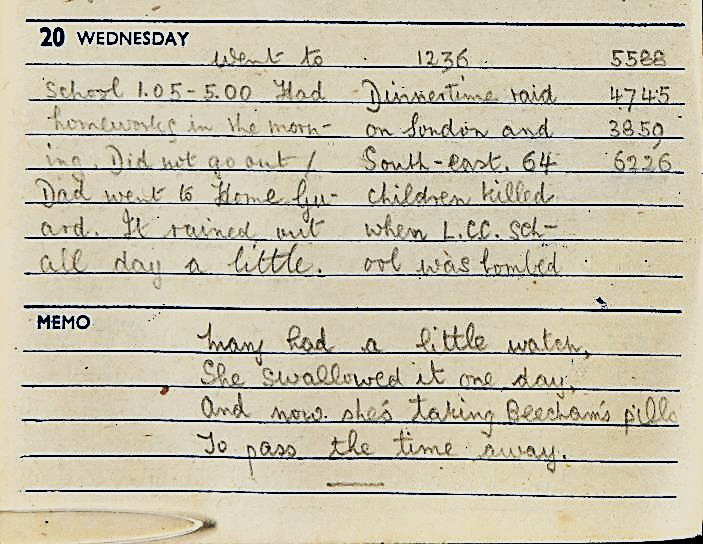 20 WEDNESDAY
went to
School 1.05-5.00 Had
homeworks in the morn-
ing. Did not go out /
Dad went to Home Gu-
ard. It rained
all day a little.
1236
Dinnertime raid
on London and
South-east. 64
children killed
when L.C.C. Sch-
ool was bombed
5588
4745
3859
6226
MEMO
Mary had a little watch,
She swallowed it one day,
And now she's taking Beecham's pills
To pass the time away.